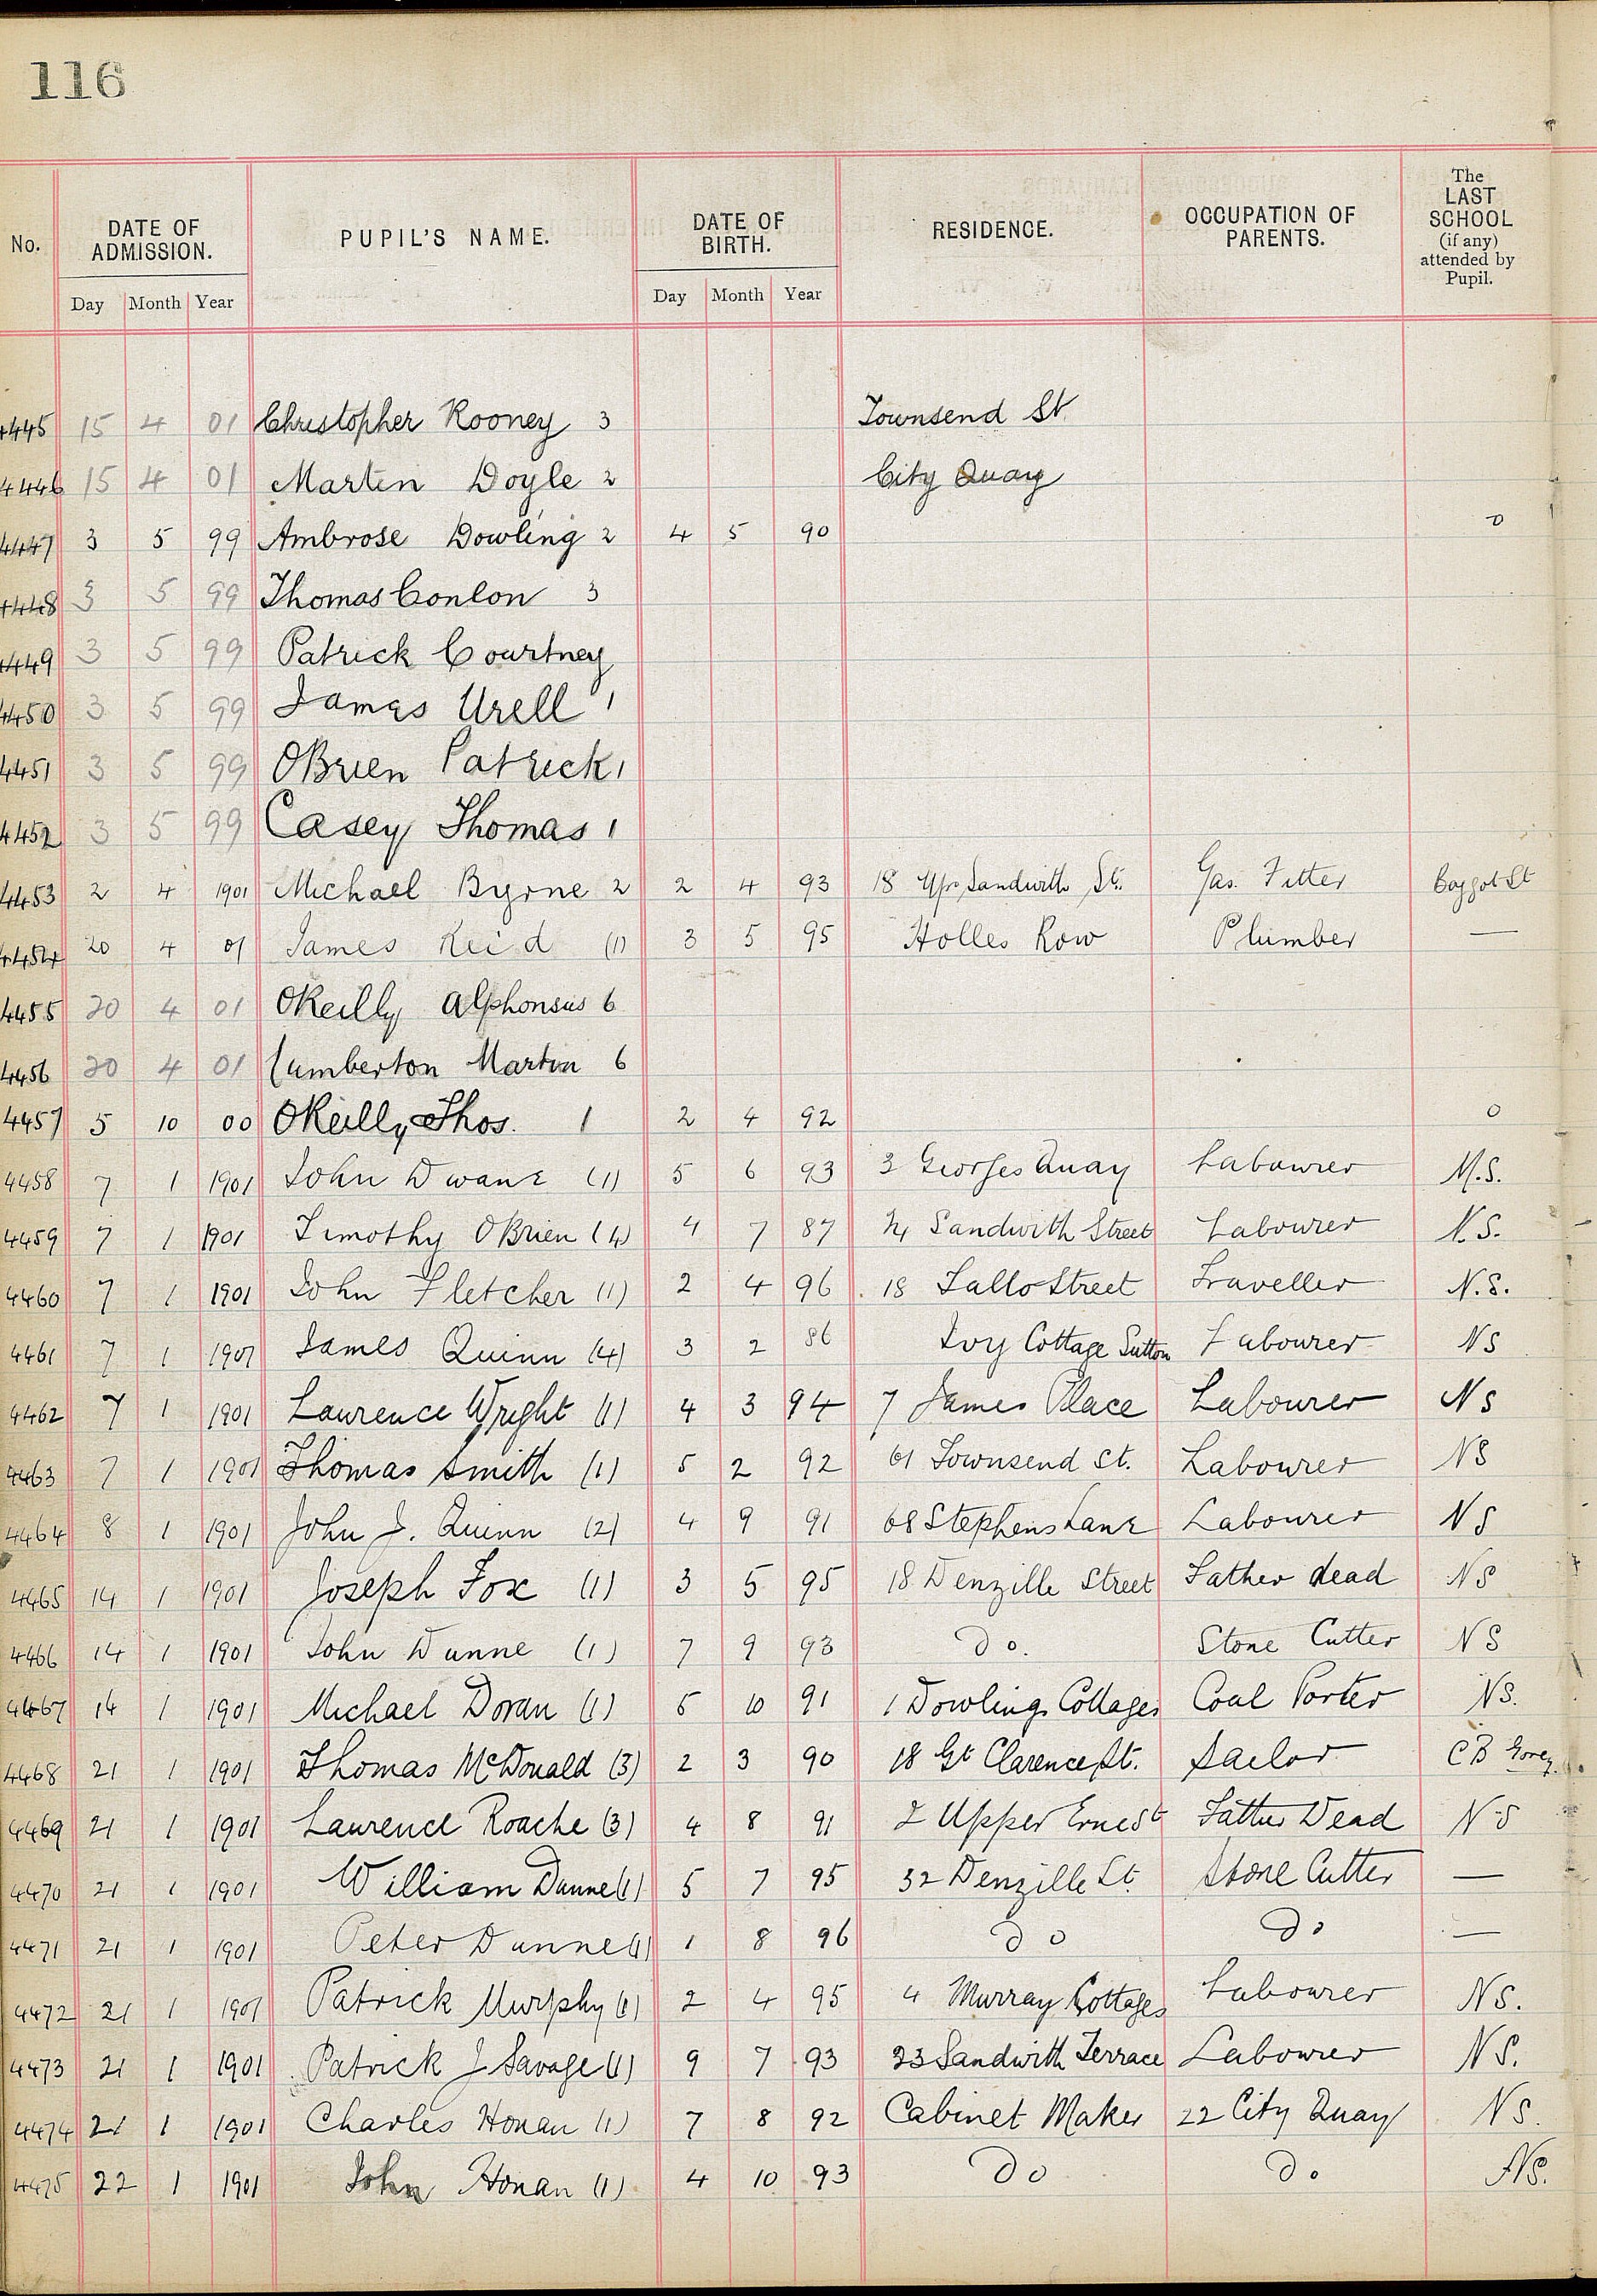 116
No. DATE OF ADMISSION. PUPIL'S NAME. DATE OF BIRTH. RESIDENCE. OCCUPATION OF PARENTS. The LAST SCHOOL (if any) attended by Pupil.
Day Month Year Day Month Year
4445 15 4 01 Christopher Rooney 3 Townsend St
4446 15 4 01 Martin Doyle 2 City Quay
4447 3 5 99 Ambrose Dowling 2 4 5 90 0
4448 3 5 99 Thomas Conlon 3
4449 3 5 99 Patrick Courtney
4450 3 5 99 James Urell 1
4451 3 5 99 OBrien Patrick 1
4452 3 5 99 Casey Thomas 1
4453 2 4 1901 Michael Byrne 2 2 4 93 18 Upr Sandwith St. Gas Fitter Baggot St
4454 20 4 01 James Reid (1) 3 5 95 Holles Row Plumber —
4455 20 4 01 OReilly Alphonsus 6
4456 20 4 01 Cumberton Martin 6
4457 5 10 00 OReilly Thos. 1 2 4 92 0
4458 7 1 1901 John Dwane (1) 5 6 93 3 Georges Quay Labourer M.S.
4459 7 1 1901 Timothy OBrien (4) 4 7 87 Sandwith Street Labourer N.S.
4460 7 1 1901 John Fletcher (1) 2 4 96 18 Lallo Street Traveller N.S.
4461 7 1 1901 James Quinn (4) 3 2 86 Ivy Cottage Sutton Labourer NS
4462 7 1 1901 Laurence Wright (1) 4 3 94 7 James Place Labourer NS
4463 7 1 1901 Thomas Smith (1) 5 2 92 61 Townsend St. Labourer NS
4464 8 1 1901 John J. Quinn (2) 4 9 91 68 Stephens Lane Labourer NS
4465 14 1 1901 Joseph Fox (1) 3 5 95 18 Denzille Street Father dead NS
4466 14 1 1901 John Dunne (1) 7 9 93 Do. Stone Cutter NS
4467 14 1 1901 Michael Doran (1) 5 10 91 1 Dowlings Cottages Coal Porter NS.
4468 21 1 1901 Thomas McDonald (3) 2 3 90 18 Gt Clarence St. Sailor CB Gorey
4469 21 1 1901 Laurence Roache (3) 4 8 91 2 Upper Erne St Father Dead NS
4470 21 1 1901 William Dunne (1) 5 7 95 32 Denzille St. Stone Cutter —
4471 21 1 1901 Peter Dunne (1) 1 8 96 Do Do —
4472 21 1 1901 Patrick Murphy (1) 2 4 95 4 Murray Cottages Labourer NS.
4473 21 1 1901 Patrick J Savage (1) 9 7 93 23 Sandwith Terrace Labourer NS.
4474 21 1 1901 Charles Honan (1) 7 8 92 Cabinet Maker 22 City Quay NS.
4475 22 1 1901 John Honan (1) 4 10 93 Do Do NS.